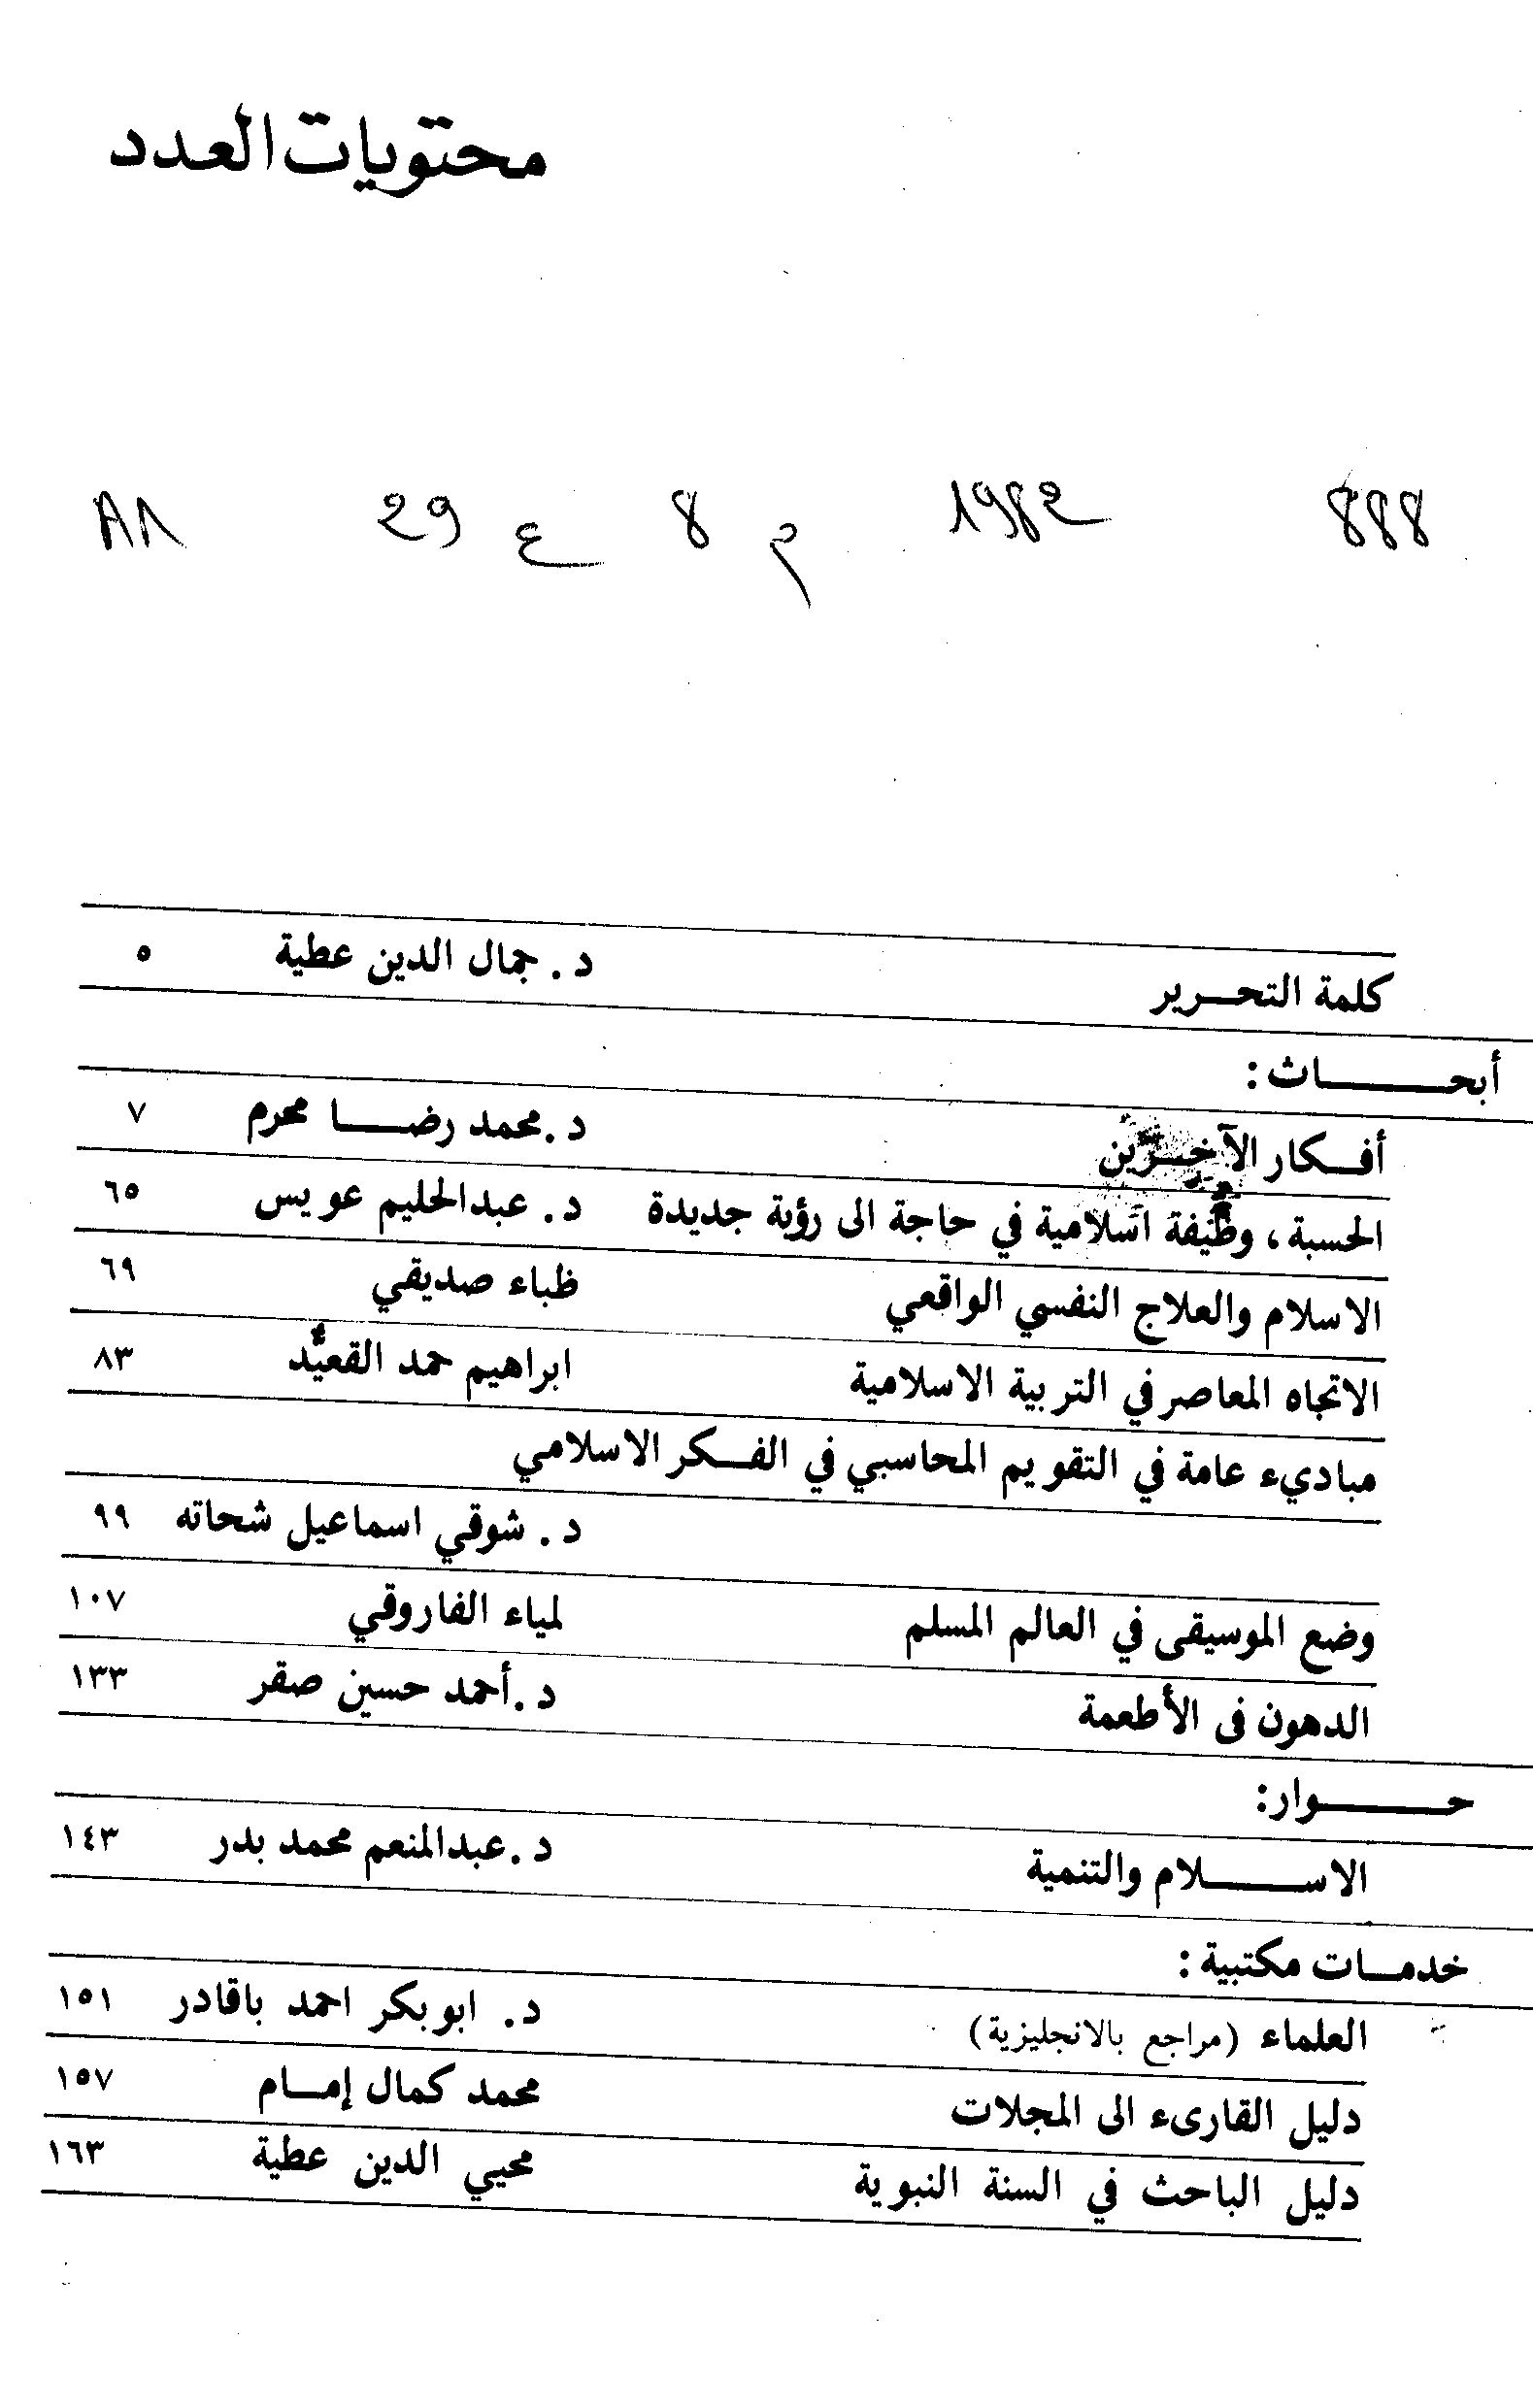 محتويات العدد
888 1982 م 8 ع 29 A1
كلمة التحـــرير د. جمال الدين عطية ٥
أبحــــــاث :
أفـــكار الآخـــرين د. محمد رضـــا محرم ٧
الحسبة ، وظيفة اسلامية في حاجة الى رؤية جديدة د. عبدالحليم عويس ٦٥
الاسلام والعلاج النفسي الواقعي ظباء صديقي ٦٩
الاتجاه المعاصر في التربية الاسلامية ابراهيم حمد القعيّد ٨٣
مباديء عامة في التقويم المحاسبي في الفـــكر الاسلامي
د. شوقي اسماعيل شحاته ٩٩
وضع الموسيقى في العالم المسلم لمياء الفاروقي ١٠٧
الدهون فى الأطعمة د. أحمد حسين صقر ١٣٣
حـــــوار:
الاســـــلام والتنمية د. عبدالمنعم محمد بدر ١٤٣
خدمـــات مكتبية :
العلماء (مراجع بالانجليزية) د. ابوبكر احمد باقادر ١٥١
دليل القارىء الى المجلات محمد كمال إمـــام ١٥٧
دليل الباحث في السنة النبوية محيي الدين عطية ١٦٣